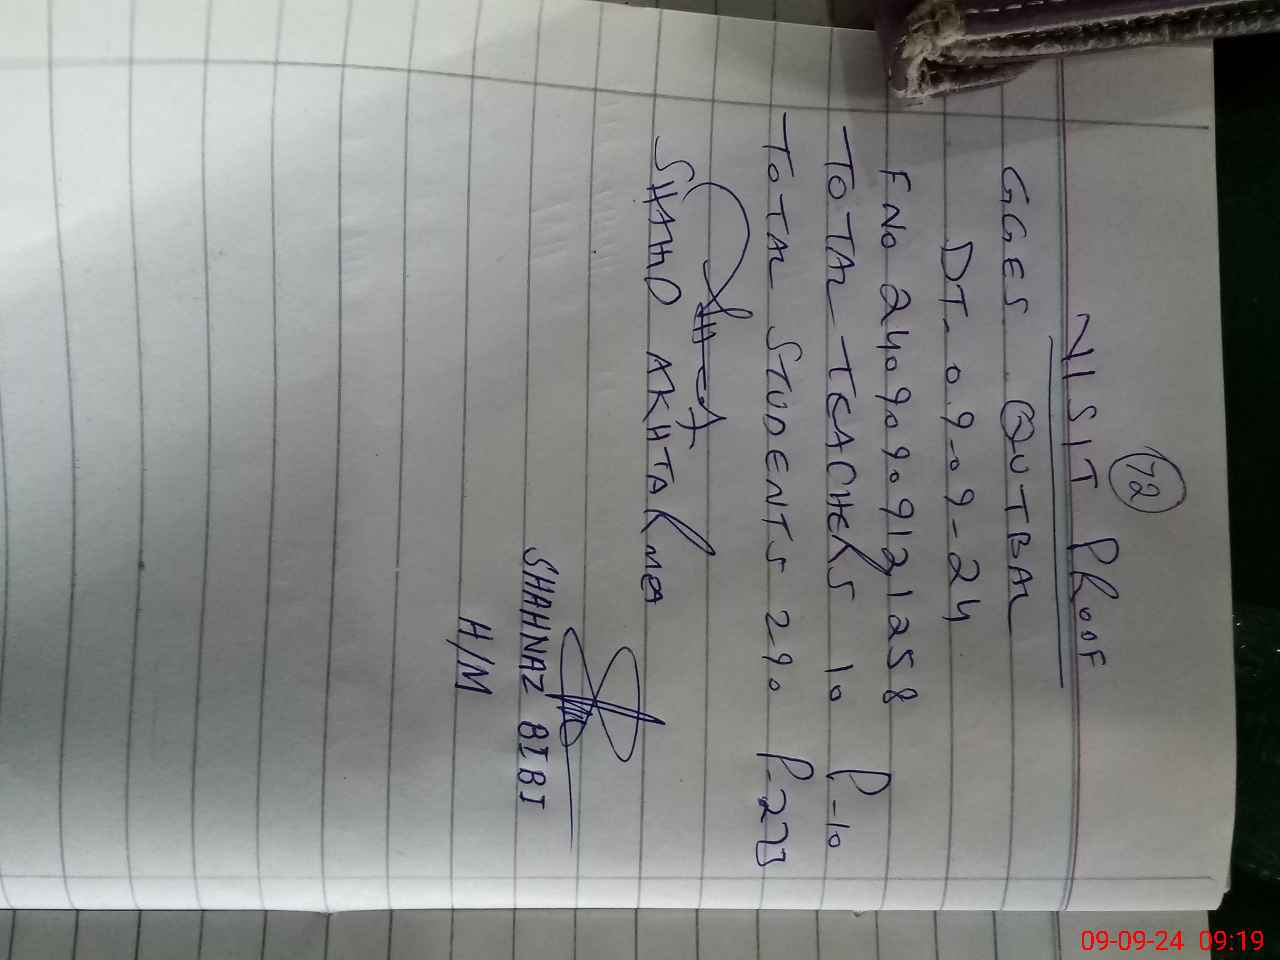 72
VISIT PROOF
GGES QUTBAL
DT- 09-09-24
F No 2409090912,1258
TOTAL TEACHERS 10 P-10
TOTAL STUDENTS 290 P-273
SHAHD AKHTAR MEA
SHAHNAZ BIBI
H/M
09-09-24 09:19